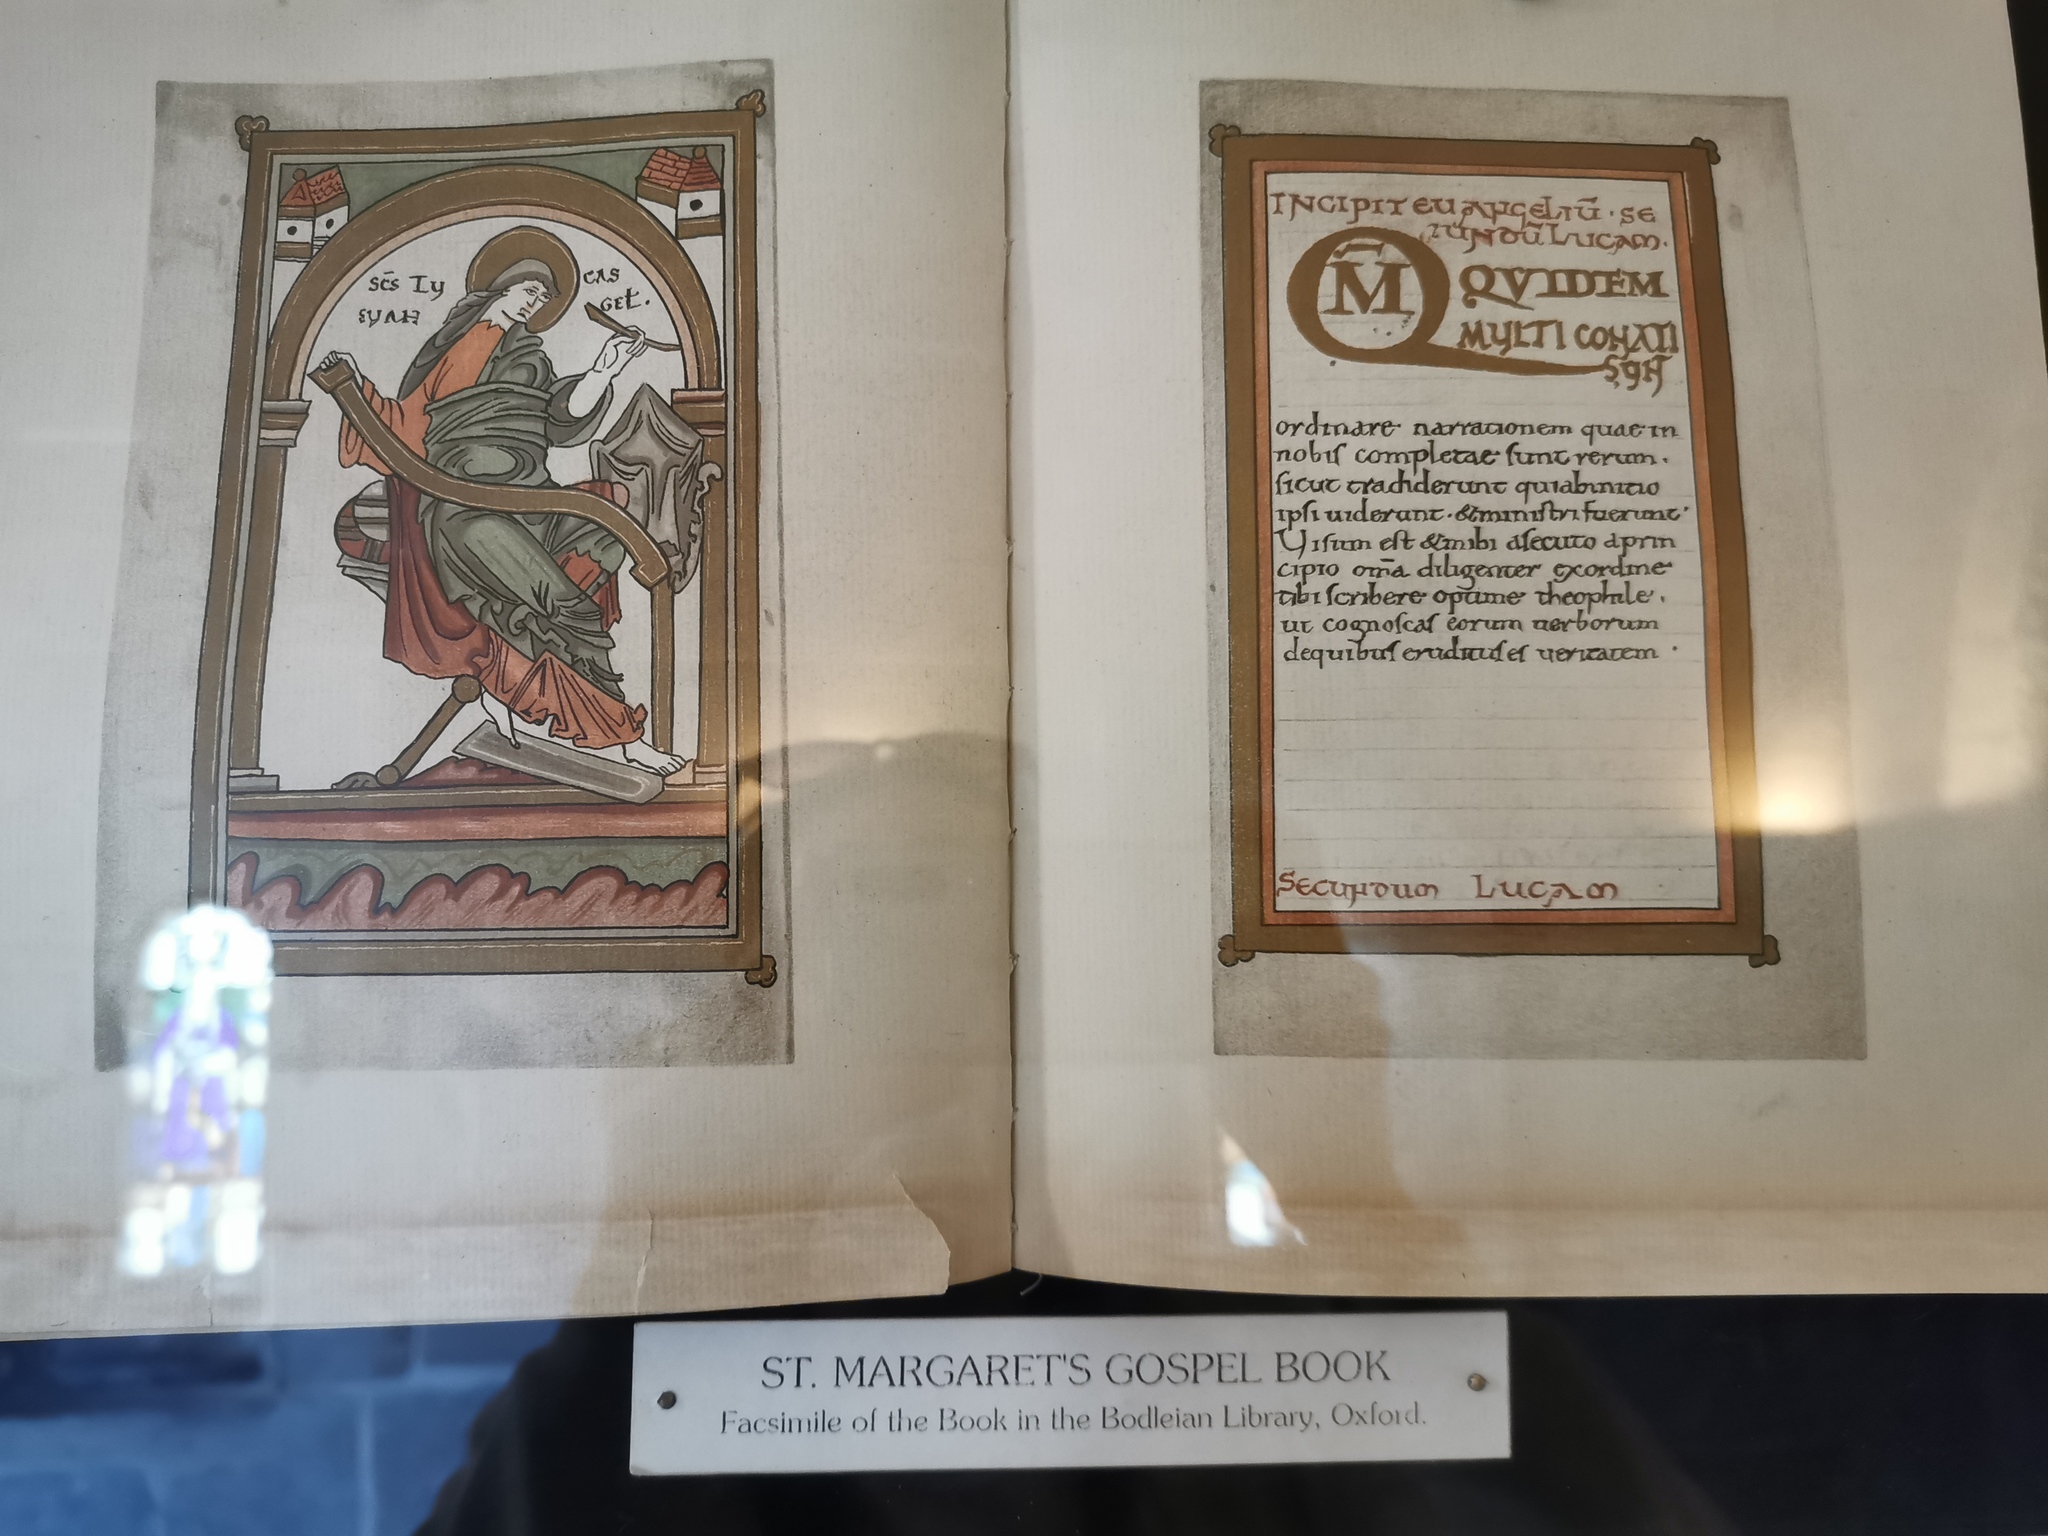 scs Ly cas
euan gel.
INCIPIT EUANGELIŪ · SE
CUNDŪ LUCAM.
QM̄ QVIDEM
MULTI CONATI
S9N
ordinare narrationem quae in
nobis completae sunt rerum.
sicut tradiderunt qui ab initio
ipsi uiderunt · & ministri fuerunt
Uisum est & mihi asecuto a prin
cipio om̄a diligenter ex ordine
tibi scribere optime theophile .
ut cognoscas eorum uerborum
de quibus eruditus es ueritatem ·
SECUNDUM LUCAM
ST. MARGARET'S GOSPEL BOOK
Facsimile of the Book in the Bodleian Library, Oxford.